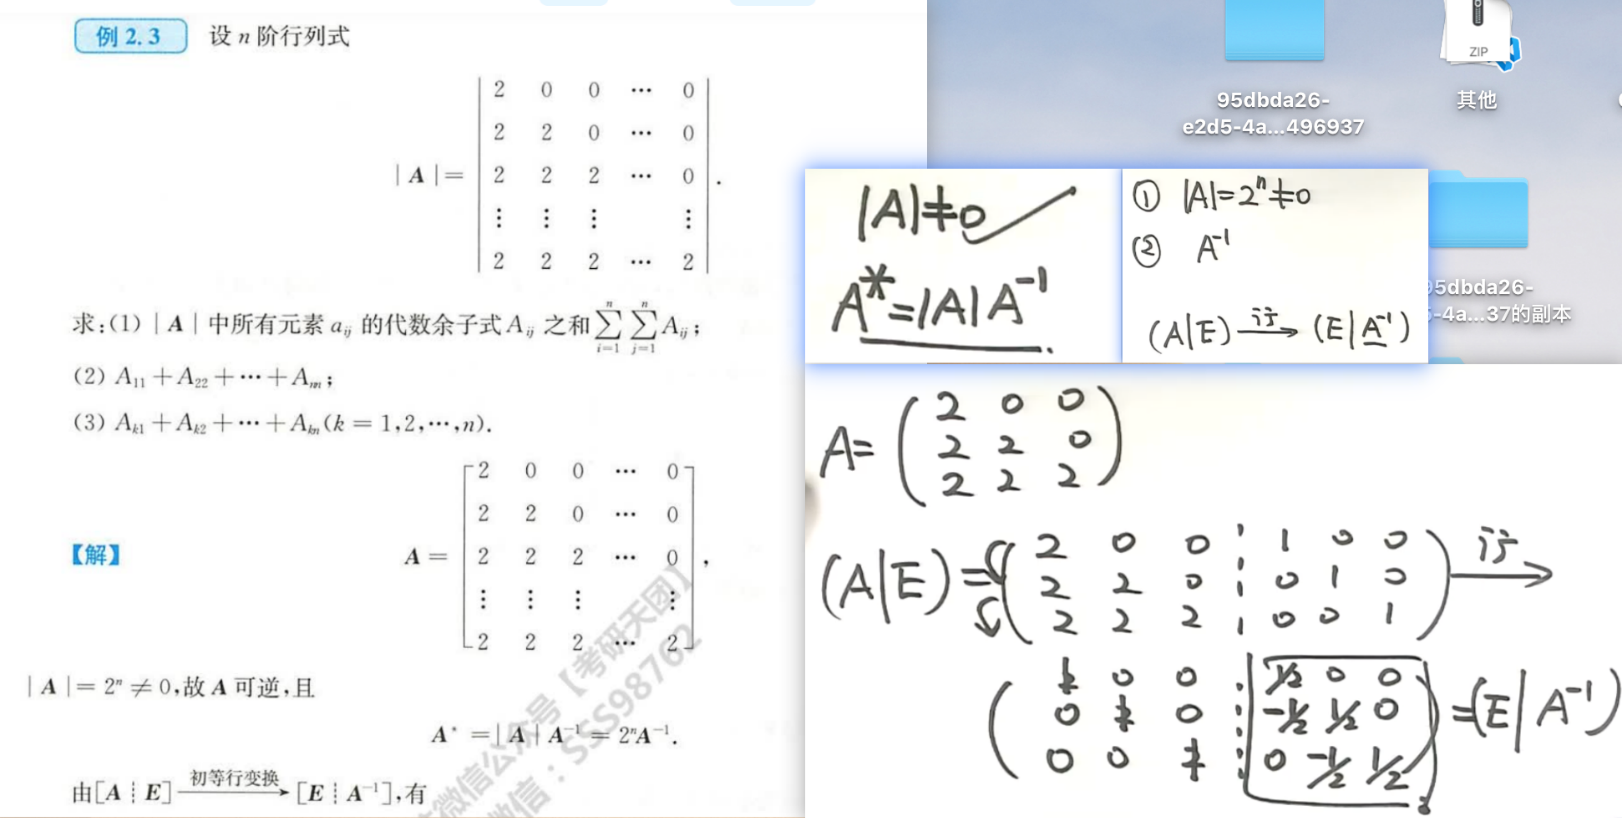 例 2.3 设 n 阶行列式
| A |= | 2 0 0 ⋯ 0 |
| 2 2 0 ⋯ 0 |
| 2 2 2 ⋯ 0 | .
| ⋮ ⋮ ⋮ ⋮ |
| 2 2 2 ⋯ 2 |
求:(1) | A | 中所有元素 aᵢⱼ 的代数余子式 Aᵢⱼ 之和 ∑ⁿᵢ₌₁ ∑ⁿⱼ₌₁ Aᵢⱼ ;
(2) A₁₁ + A₂₂ + ⋯ + Aₙₙ ;
(3) Aₖ₁ + Aₖ₂ + ⋯ + Aₖₙ (k = 1,2,⋯,n).
【解】 A = [ 2 0 0 ⋯ 0 ]
[ 2 2 0 ⋯ 0 ]
[ 2 2 2 ⋯ 0 ] ,
[ ⋮ ⋮ ⋮ ⋮ ]
[ 2 2 2 ⋯ 2 ]
| A |= 2ⁿ ≠ 0,故 A 可逆,且
A* =| A | A⁻¹ = 2ⁿA⁻¹.
由[A ⋮ E] 初等行变换→ [E ⋮ A⁻¹],有
微信公众号【考研天团】
微信:SSS98762
95dbda26-
e2d5-4a...496937
ZIP
其他
95dbda26-
5-4a...37的副本
|A|≠0
A*=|A|A⁻¹.
① |A|=2ⁿ≠0
② A⁻¹
(A|E) 行→ (E|A⁻¹)
A= ( 2 0 0
2 2 0
2 2 2 )
(A|E)=( 2 0 0 ⋮ 1 0 0
2 2 0 ⋮ 0 1 0
2 2 2 ⋮ 0 0 1 ) 行→
( 1 0 0 ⋮ 1/2 0 0
0 1 0 ⋮ -1/2 1/2 0
0 0 1 ⋮ 0 -1/2 1/2 ) =(E|A⁻¹)